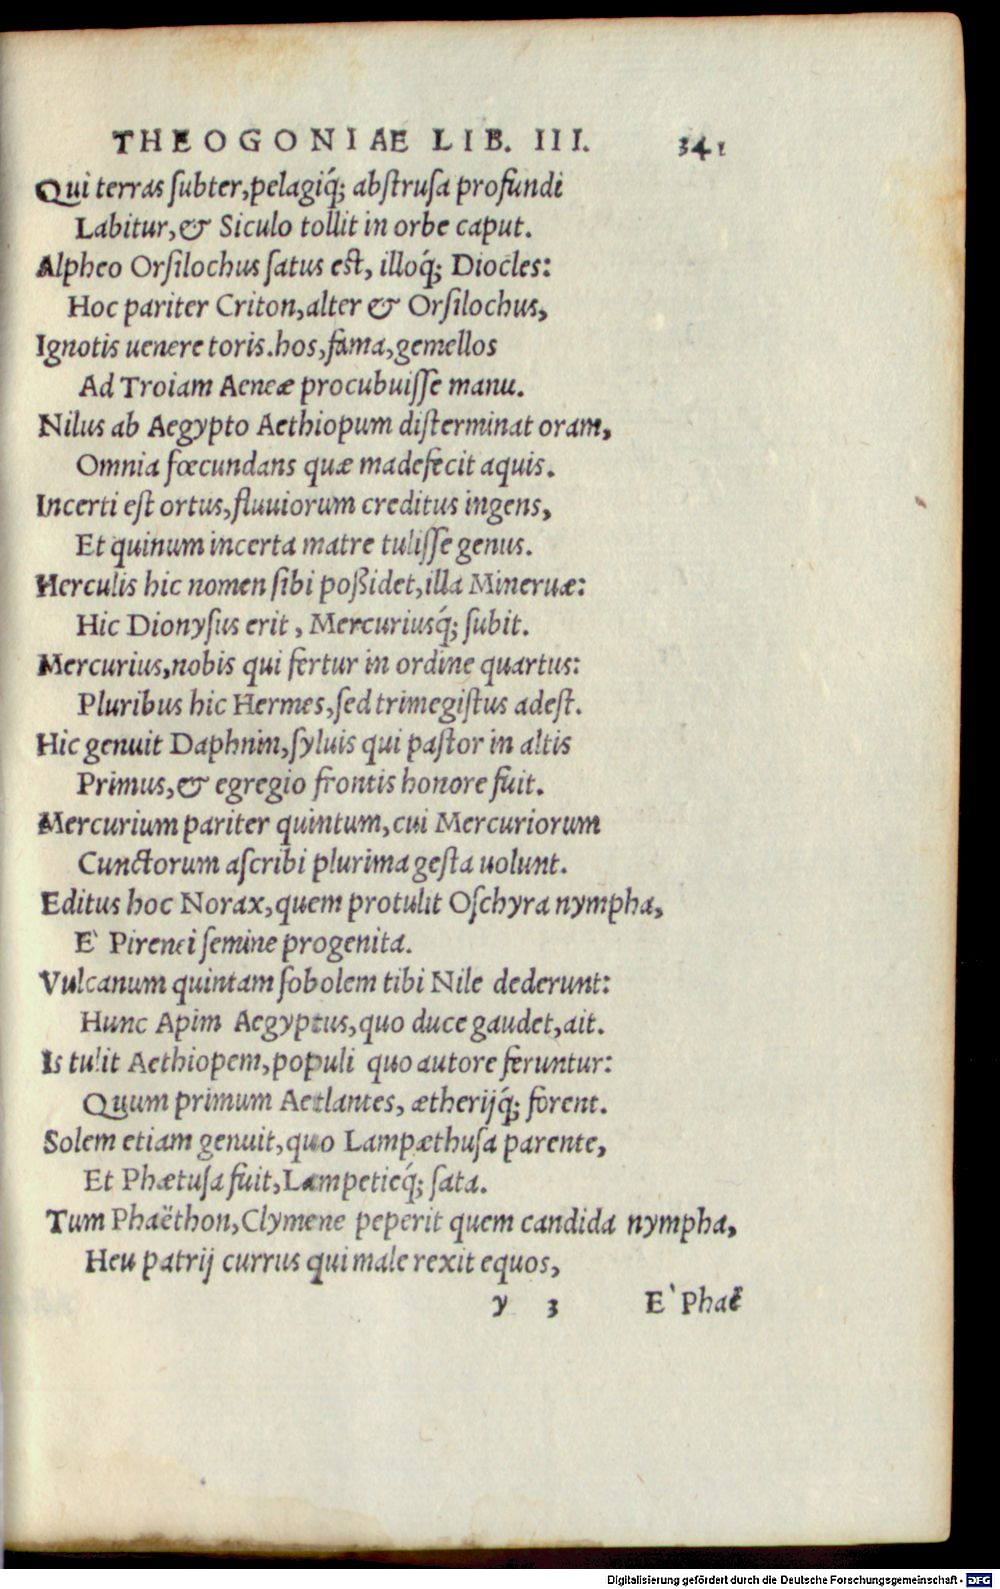 THEOGONIAE LIB. III. 341
Qui terras ſubter,pelagiq́; abſtruſa profundi
Labitur,& Siculo tollit in orbe caput.
Alpheo Orſilochus ſatus eſt, illoq́; Diocles:
Hoc pariter Criton,alter & Orſilochus,
Ignotis uenere toris.hos,fama,gemellos
Ad Troiam Aeneæ procubuiſſe manu.
Nilus ab Aegypto Aethiopum diſterminat oram,
Omnia fœcundans quæ madefecit aquis.
Incerti eſt ortus,fluuiorum creditus ingens,
Et quinum incerta matre tuliſſe genus.
Herculis hic nomen ſibi poßidet,illa Mineruæ:
Hic Dionyſus erit, Mercuriusq́; ſubit.
Mercurius,nobis qui fertur in ordine quartus:
Pluribus hic Hermes,ſed trimegiſtus adeſt.
Hic genuit Daphnin,ſyluis qui paſtor in altis
Primus,& egregio frontis honore fuit.
Mercurium pariter quintum,cui Mercuriorum
Cunctorum aſcribi plurima geſta uolunt.
Editus hoc Norax,quem protulit Oſchyra nympha,
E` Pirenei ſemine progenita.
Vulcanum quintam ſobolem tibi Nile dederunt:
Hunc Apim Aegyptus,quo duce gaudet,ait.
Is tulit Aethiopem,populi quo autore feruntur:
Quum primum Aetlantes, ætherijq́; forent.
Solem etiam genuit,quo Lampæthuſa parente,
Et Phætuſa fuit,Lampetieq́; ſata.
Tum Phaëthon,Clymene peperit quem candida nympha,
Heu patrij currus qui male rexit equos,
y 3 E` Phaë
Digitalisierung gefördert durch die Deutsche Forschungsgemeinschaft - DFG